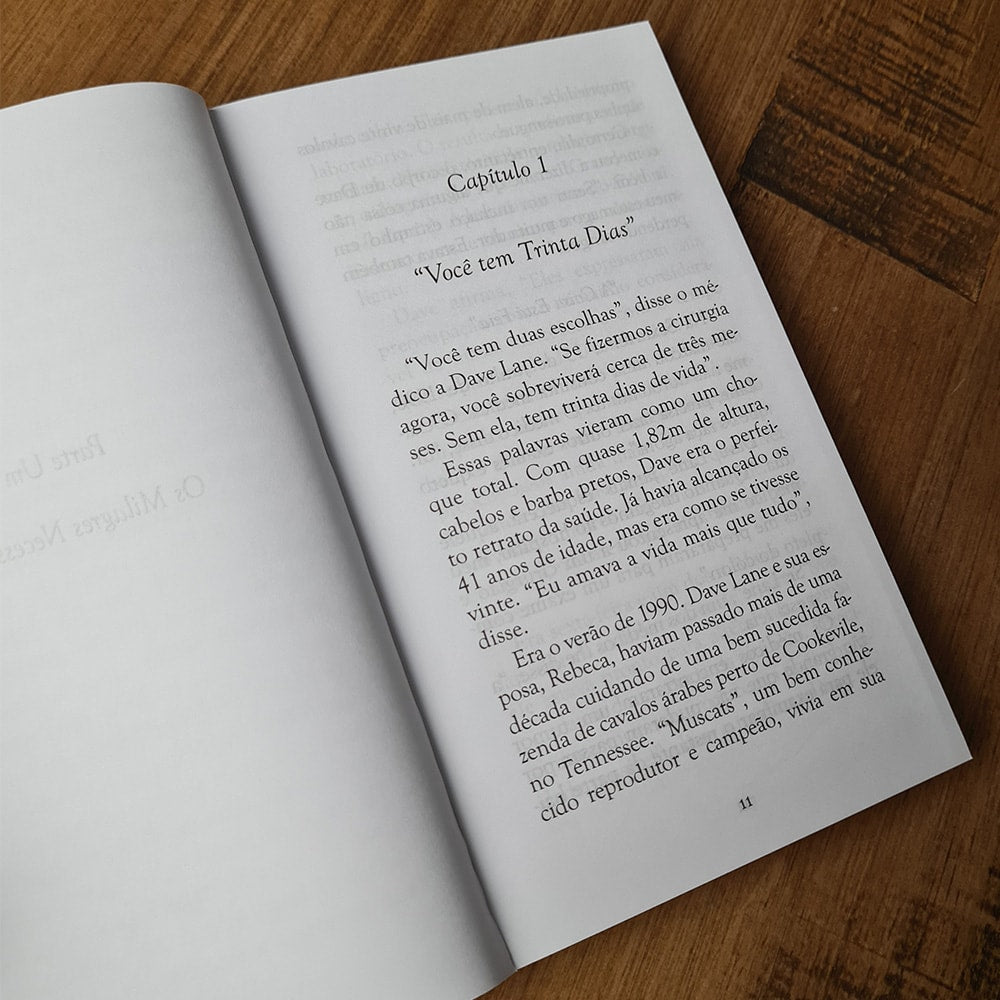 Parte Um
Os Milagres
Capítulo 1
“Você tem Trinta Dias”
“Você tem duas escolhas”, disse o mé-
dico a Dave Lane. “Se fizermos a cirurgia
agora, você sobreviverá cerca de três me-
ses. Sem ela, tem trinta dias de vida”.
Essas palavras vieram como um cho-
que total. Com quase 1,82m de altura,
cabelos e barba pretos, Dave era o perfei-
to retrato da saúde. Já havia alcançado os
41 anos de idade, mas era como se tivesse
vinte. “Eu amava a vida mais que tudo”,
disse.
Era o verão de 1990. Dave Lane e sua es-
posa, Rebeca, haviam passado mais de uma
década cuidando de uma bem sucedida fa-
zenda de cavalos árabes perto de Cookevile,
no Tennessee. “Muscats”, um bem conhe-
cido reprodutor e campeão, vivia em sua
11